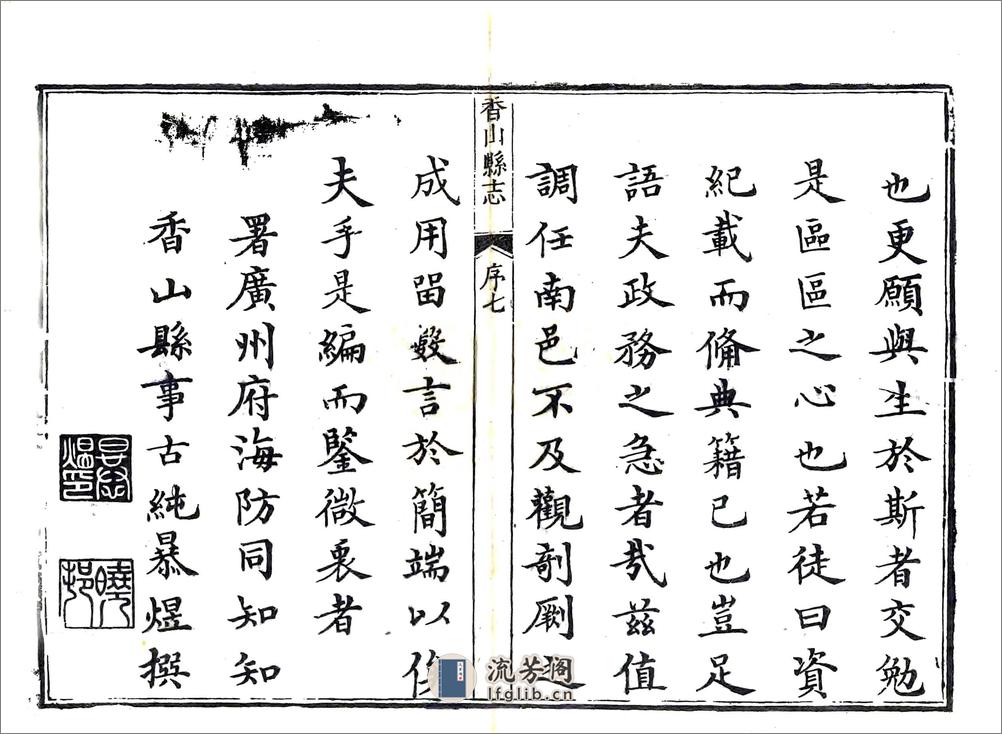 也更願與生於斯者交勉
是區區之心也若徒曰資
紀載而備典籍已也豈足
語夫政務之急者哉茲值
調任南邑不及觀剞劂之
香山縣志
序七
成用留數言於簡端以俟
夫手是編而鑒微衷者
署廣州府海防同知知
香山縣事古純暴煜撰
曉邨
流芳阁
lfglib.cn